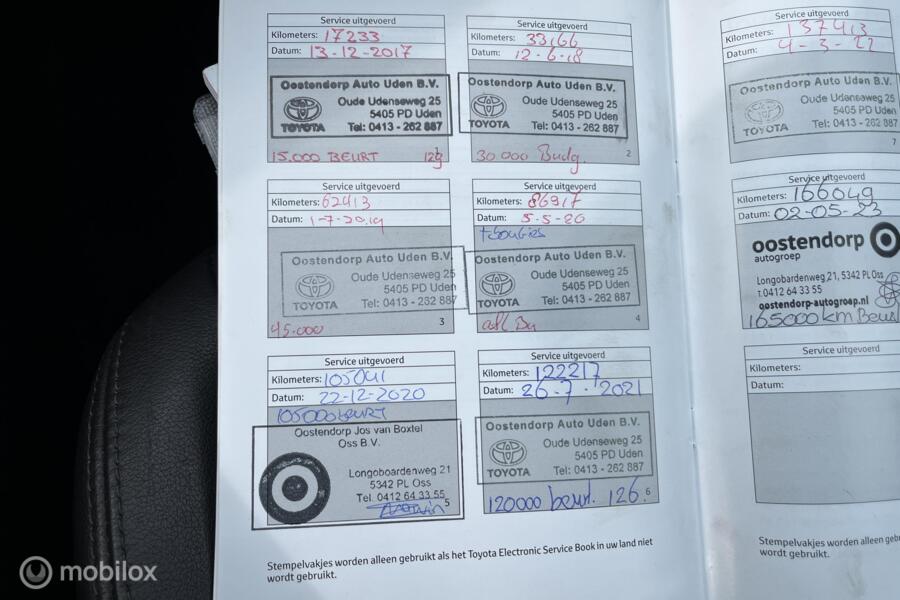 Service uitgevoerd
Kilometers: 17233
Datum: 13-12-2017
Oostendorp Auto Uden B.V.
Oude Udenseweg 25
5405 PD Uden
TOYOTA
Tel: 0413 - 262 887
15.000 BEURT
Service uitgevoerd
Kilometers: 33166
Datum: 12-6-18
Oostendorp Auto Uden B.V.
Oude Udenseweg 25
5405 PD Uden
TOYOTA
Tel: 0413 - 262 887
30.000
2
Service uitgevoerd
Kilometers: 62413
Datum: 1-7-2019
Oostendorp Auto Uden B.V.
Oude Udenseweg 25
5405 PD Uden
TOYOTA
Tel: 0413 - 262 887
45.000
3
Service uitgevoerd
Kilometers: 86917
Datum: 5-5-20
Oostendorp Auto Uden B.V.
Oude Udenseweg 25
5405 PD Uden
TOYOTA
Tel: 0413 - 262 887
4
Service uitgevoerd
Kilometers: 105041
Datum: 22-12-2020
105000 BEURT
Oostendorp Jos van Boxtel
Oss B.V.
Longoboardenweg 21
5342 PL Oss
Tel. 0412 64 33 55
5
Service uitgevoerd
Kilometers: 122217
Datum: 26-7-2021
Oostendorp Auto Uden B.V.
Oude Udenseweg 25
5405 PD Uden
TOYOTA
Tel: 0413 - 262 887
120000 beurt. 126.
6
Stempelvakjes worden alleen gebruikt als het Toyota Electronic Service Book in uw land niet
wordt gebruikt.
Service uitgevoerd
Kilometers: 137413
Datum: 4-3-22
Oostendorp Auto Uden B.V.
Oude Udenseweg 25
5405 PD Uden
TOYOTA
Tel: 0413 - 262 887
7
Service uitgevoerd
Kilometers: 166049
Datum: 02-05-23
oostendorp
autogroep
Longobardenweg 21, 5342 PL Oss
T. 0412 64 33 55
oostendorp-autogroep.nl
165000km
Service uitgevoerd
Kilometers:
Datum:
Stempelvakjes worden alleen
wordt gebruikt.
mobilox